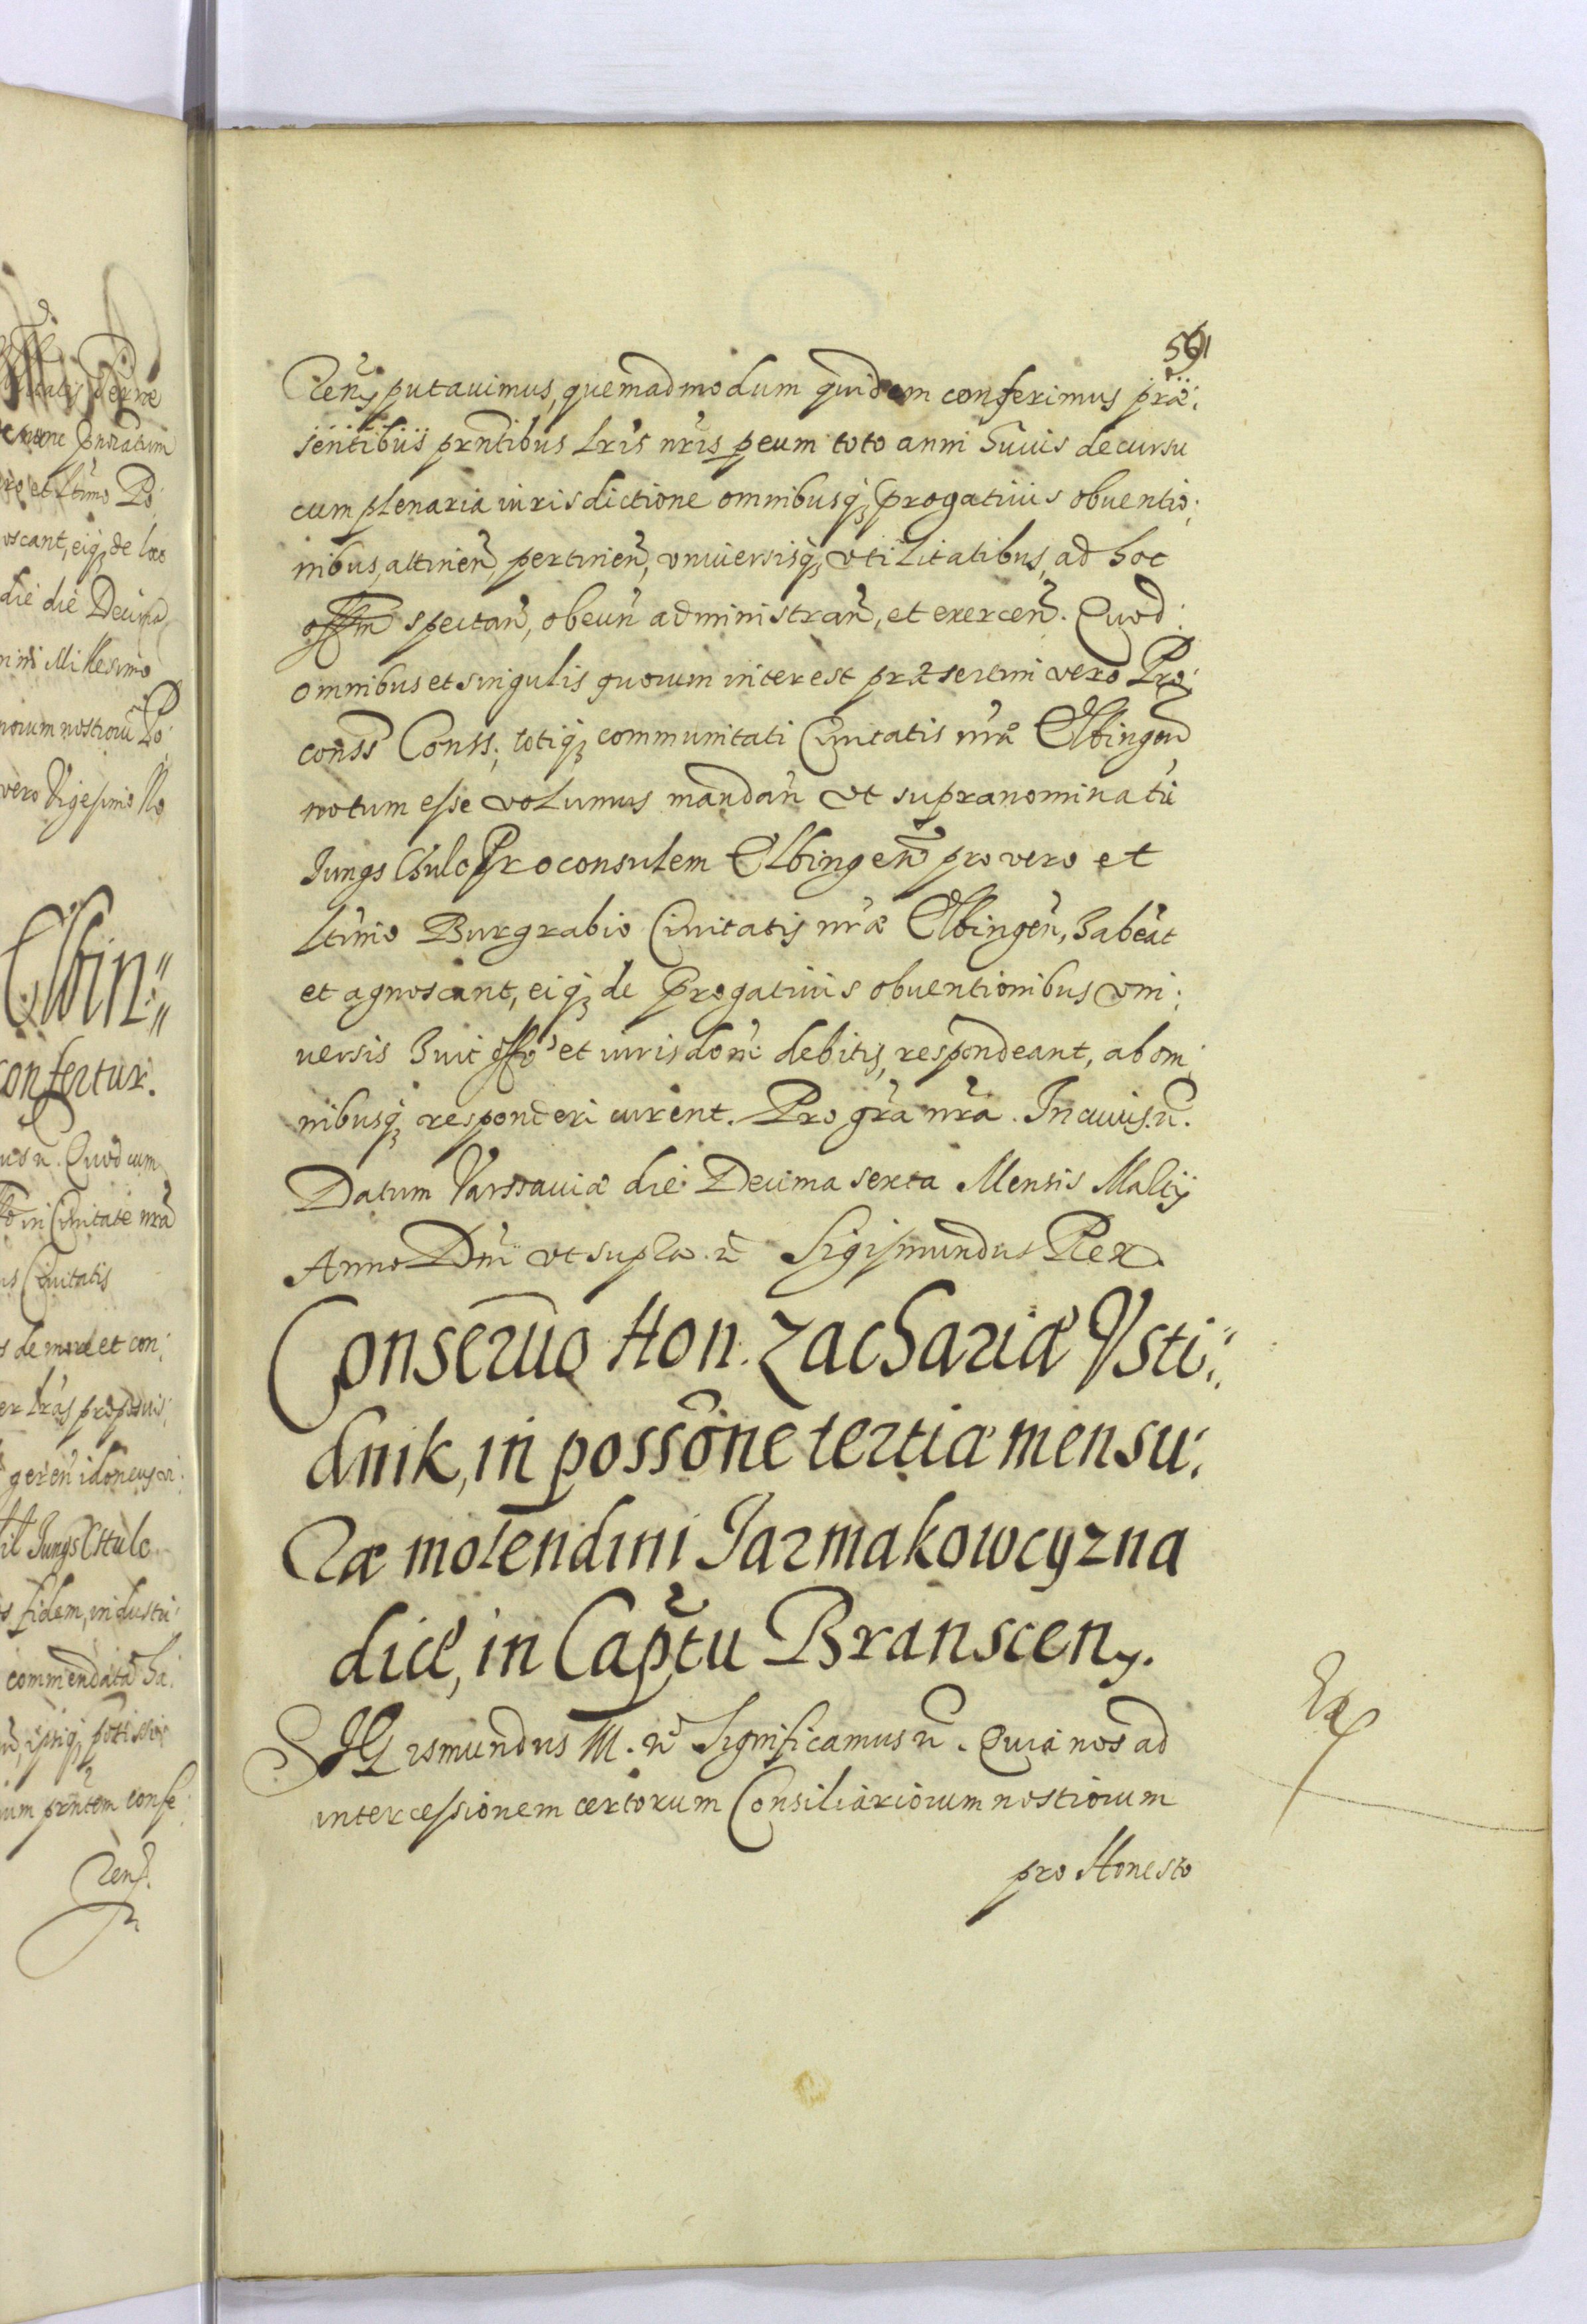 591
ren̄, putauimus, quemadmodum quidem conferimus præ:
sentibus prn̄tibus lr̄is nr̄is p eum toto anni huius decursu
cum plenaria iurisdictione omnibusq₃ progatiuis obuentio:
nibus, attinen̄, pertinen̄, vniuersisq₃ vtilitatibus, ad hoc
offm̄ spectan̄, obeun̄ administran̄, et exercen̄. Quod:
omnibus et singulis quorum interest præsertim vero Pro:
conss̄ Conss, totiq₃ communitati Ciuitatis nr̄æ Elbingen̄
notum esse volumus mandan̄ vt supranominatū
Jungschulc Proconsulem Elbingen̄ pro vero et
ltīmo Burgrabio Ciuitatis nr̄æ Elbingen̄, habeāt
et agnoscant, eiq₃ de progatiuis obuentionibus vni:
uersis huic offō et iurisdōni debitis, respondeant, ab om:
nibusq₃ responderi curent. Pro gr̄a nr̄a. In cuius. n̄.
Datum Varssauiæ die Decima sexta Mensis Maĳ
Anno Dn̄i vt supra. n̄ Sigismundus Rex
Conseruo Hon. Zachariæ Vsti:
dnik, in possōne tertiæ mensu:
ræ molendini Jarmakowcyzna
dictæ, in Captū Branscen.
SIGismundus III. n̄ Significamus n̄. Quia nos ad
intercessionem certorum Consiliariorum nostrorum
pro Honesto
Elbin:
confertur.
die die Decima
nini Millesimo
vero Vigesimo No
ū in Ciuitate nr̄a
us Ciuitatis
s de more et con:
s fidem, industri:
commendatā ha:
um prn̄tem confe:
ren.